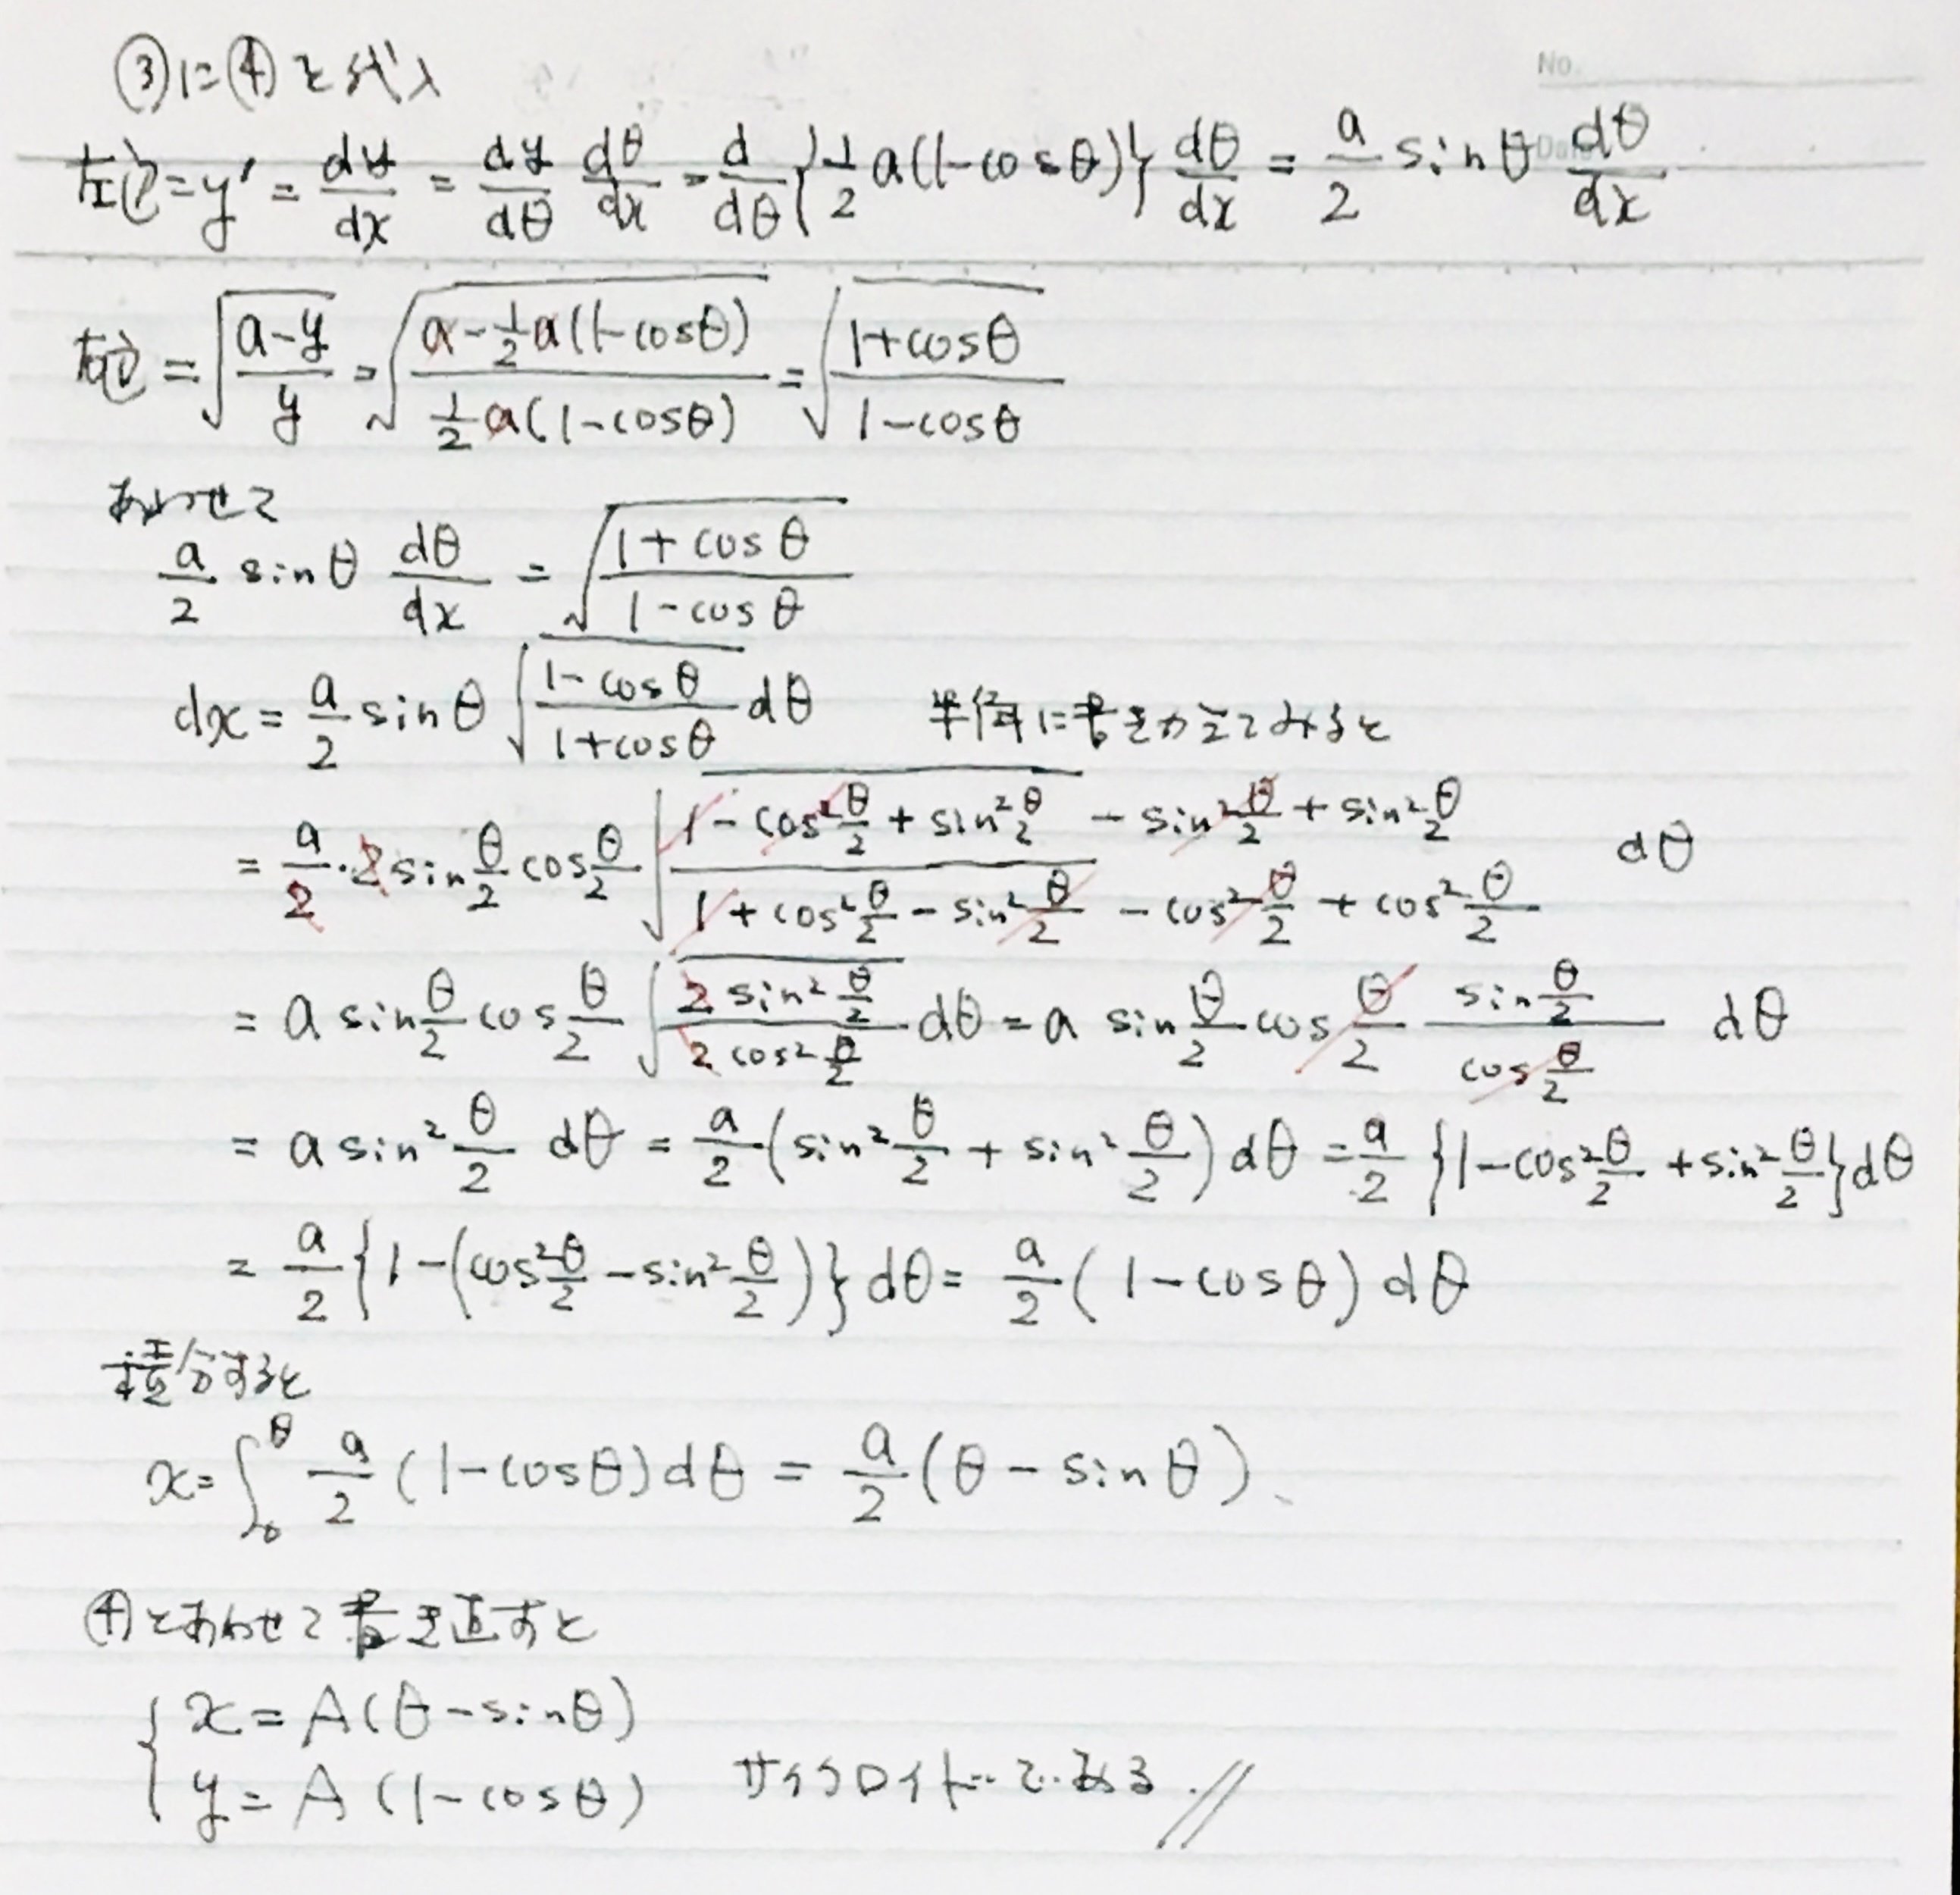 No.
③に④を代入
Date
左辺 = y' = dy/dx = dy/dθ dθ/dx = d/dθ {1/2 a(1-cosθ)} dθ/dx = a/2 sinθ dθ/dx
右辺 = √((a-y)/y) = √((a-1/2 a(1-cosθ))/(1/2 a(1-cosθ))) = √((1+cosθ)/(1-cosθ))
あわせて
a/2 sinθ dθ/dx = √((1+cosθ)/(1-cosθ))
dx = a/2 sinθ √((1-cosθ)/(1+cosθ)) dθ 半角に書きかえてみると
= a/2・2 sin θ/2 cos θ/2 √((1-cos² θ/2 + sin² θ/2 - sin² θ/2 + sin² θ/2)/(1+cos² θ/2 - sin² θ/2 - cos² θ/2 + cos² θ/2)) dθ
= a sin θ/2 cos θ/2 √((2 sin² θ/2)/(2 cos² θ/2)) dθ = a sin θ/2 cos θ/2 (sin θ/2)/(cos θ/2) dθ
= a sin² θ/2 dθ = a/2 (sin² θ/2 + sin² θ/2) dθ = a/2 {1-cos² θ/2 + sin² θ/2} dθ
= a/2 {1-(cos² θ/2 - sin² θ/2)} dθ = a/2 (1-cosθ) dθ
積分すると
x = ∫₀^θ a/2 (1-cosθ) dθ = a/2 (θ - sinθ)
④とあわせて書き直すと
{ x = A(θ-sinθ)
y = A(1-cosθ) サイクロイドである. //